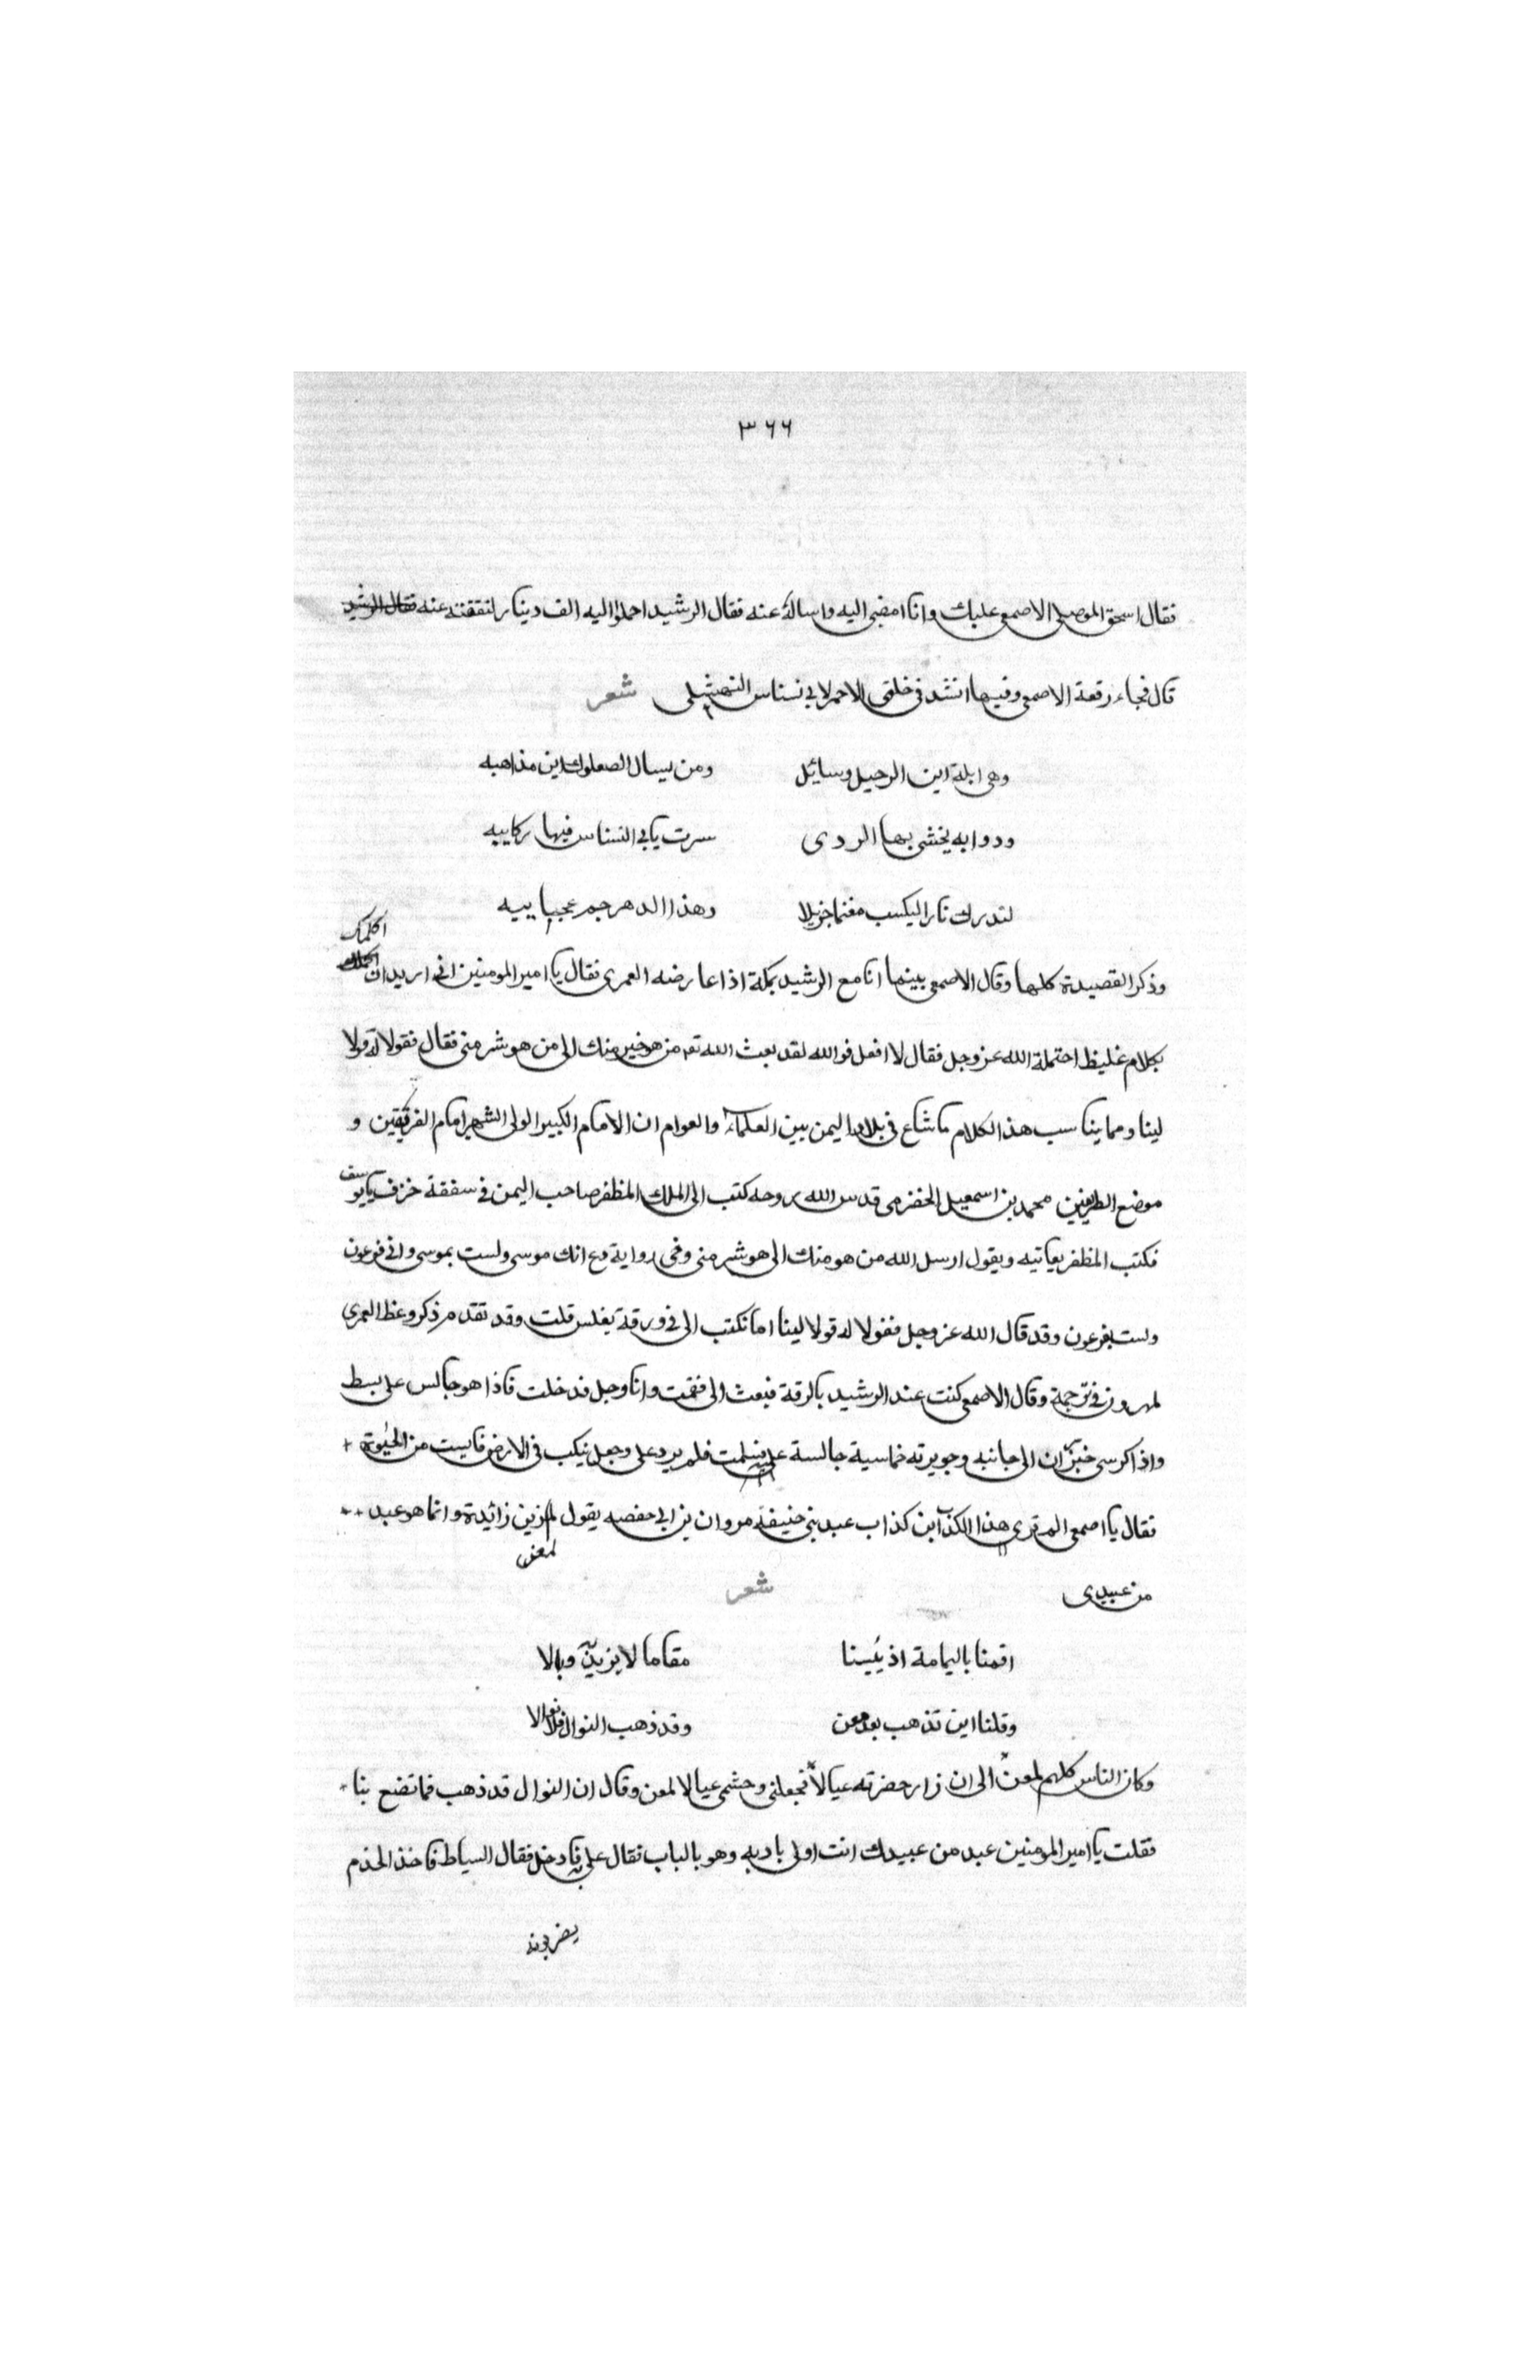 ٣٦٦
فقال اسحق الموصلى الاصمعى عليك وانا امضى اليه واسأله عنه فقال الرشيد احملوا اليه الف دينار لنفقته عنه فقال الرشيد
قال فجاء رقعة الاصمعى وفيها انشدنى خلقى الاحمر لابى نسناس النهشلى شعر
وهى ابلة اين الرحيل وسائل ومن يسال الصعلوك اين مذاهبه
ودوابه يخشى بها الردى سرت بابى النسناس فيها ركايبه
لتدرك ثارا ليكسب مغنما جزيلا وهذا الدهر جم عجايبه
وذكر القصيدة كلها وقال الاصمعى بينما انا مع الرشيد بمكة اذا عارضه العمرى فقال يا امير المومنين انى اريد ان اكلمك
بكلام غليظ احتمله الله عز وجل فقال لا افعل فوالله لقد بعث الله تع من هو خير منك الى من هو شر منى فقال فقولا له قولا
لينا ومما يناسب هذ الكلام ما شاع فى بلاد اليمن بين العلماء والعوام ان الامام الكبير الولى الشهير امام الفريقين و
موضع الطريقين محمد بن اسمعيل الحضرمى قدس الله روحه كتب الى الملك المظفر صاحب اليمن فى سفقة خزف يا يوسف
فكتب المظفر يعاتبه ويقول ارسل الله من هو منك الى هو شر منى وفى رواية مع انك موسى ولست بموسى وانى فرعون
ولست بفرعون وقد قال الله عز وجل فقولا له قولا لينا اما تكتب الى فى ورقة بفلس قلت وقد تقدم ذكر وعظ العمرى
لهرون فى ترجمة وقال الاصمعى كنت عند الرشيد بالرقة فبعث الى فقمت وانا وجل فدخلت فاذا هو جالس على بسط
واذا كرسى خيزران الى جانبه وجويرته خماسية جالسة عليه فسلمت فلم يرد على وجعل ينكب فى الارض فايست من الحيوة
فقال يا اصمعى الم ترى هذا الكذاب بن كذاب عبد بنى حنيفة مروان بن ابى حفصه يقول لمعن بن زائدة وانما هو عبد
من عبيدى شعر
اقمنا باليمامة اذ يئسنا مقاما لا يزيد وبالا
وقلنا اين تذهب بعد معن وقد ذهب النوال فلا نوالا
وكان الناس كلهم لمعن الى ان زار حضرته عيالا فجعلنى وحشمى عيالا لمعن وقال ان النوال قد ذهب فما تضع بنا
فقلت يا امير المومنين عبد من عبيدك انت اولى بادبه وهو بالباب فقال على به فادخل فقال السياط فاخذ الخدم
يضربونه